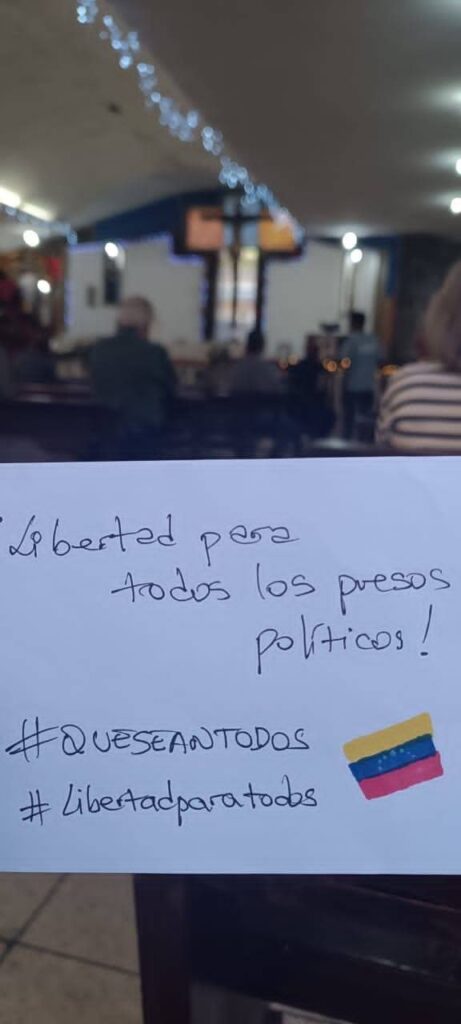 ¡Libertad para
todos los presos
políticos!
#QUESEANTODOS
#Libertadparatodos